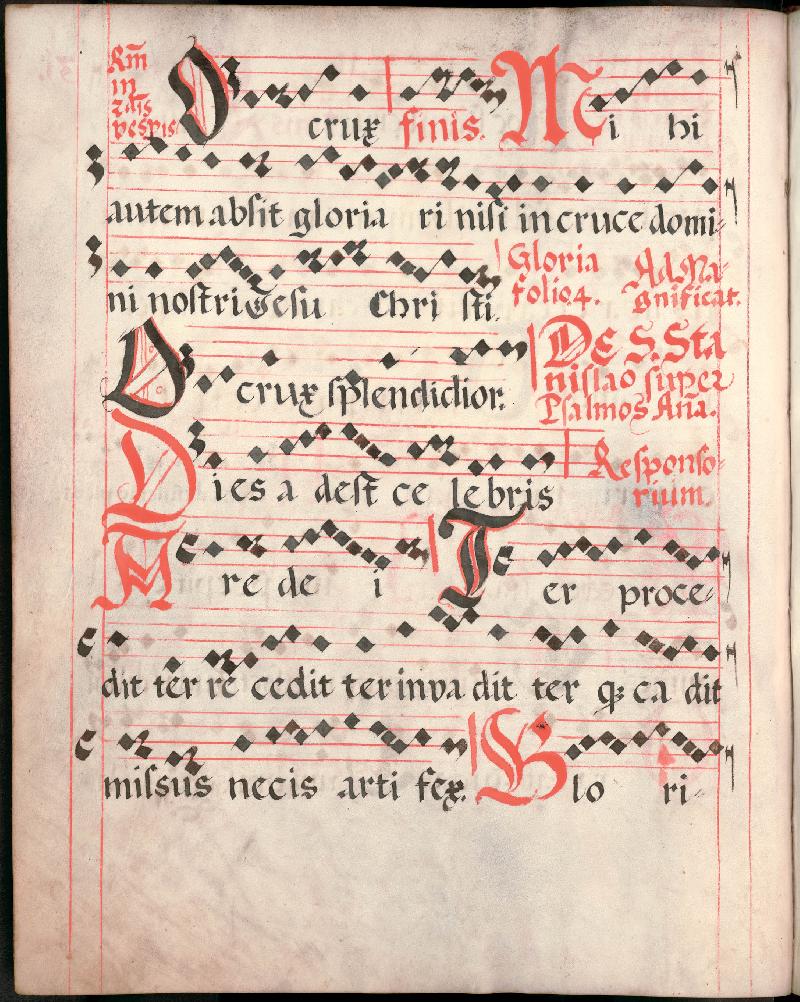 Rm̄
in
2dis
vesp̄is
O crux finis. Mi hi
autem absit gloria ri nisi in cruce domi-
ni nostri Jesu Chri sti.
Gloria
folio 4.
Ad Ma-
gnificat.
O crux splendidior.
De S. Sta
nislao super
Psalmos Ana.
Dies a dest ce lebris
Responso-
rium.
A re de i Ter proce-
dit ter re cedit ter inva dit ter q; ca dit
missus necis arti fex. Glo ri-